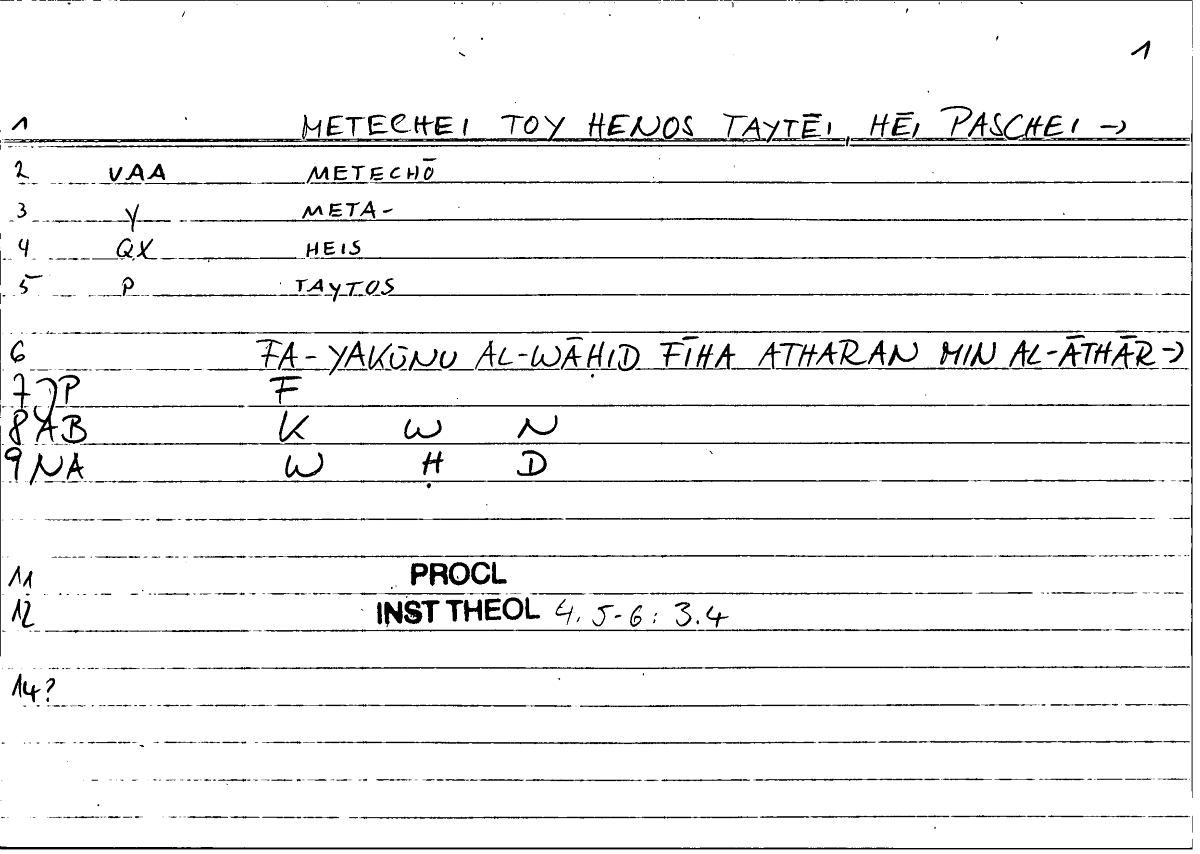 1
1 METECHEI TOY HENOS TAYTĒI, HĒI PASCHEI →
2 VAA METECHŌ
3 Y META-
4 QX HEIS
5 P TAYTOS
6 FA-YAKŪNU AL-WĀḤID FĪHA ATHARAN MIN AL-ĀTHĀR →
7 JP F
8 AB K W N
9 NA W Ḥ D
11 PROCL
12 INST THEOL 4.5-6: 3.4
14?